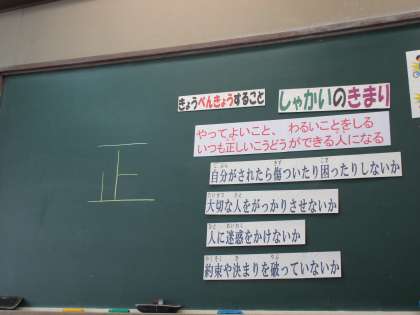 きょうべんきょうすること
しゃかいのきまり
正
やってよいこと、わるいことをしる
いつも正しいこうどうができる人になる
自分がされたら傷ついたり困ったりしないか
大切な人をがっかりさせないか
人に迷惑をかけないか
約束や決まりを破っていないか